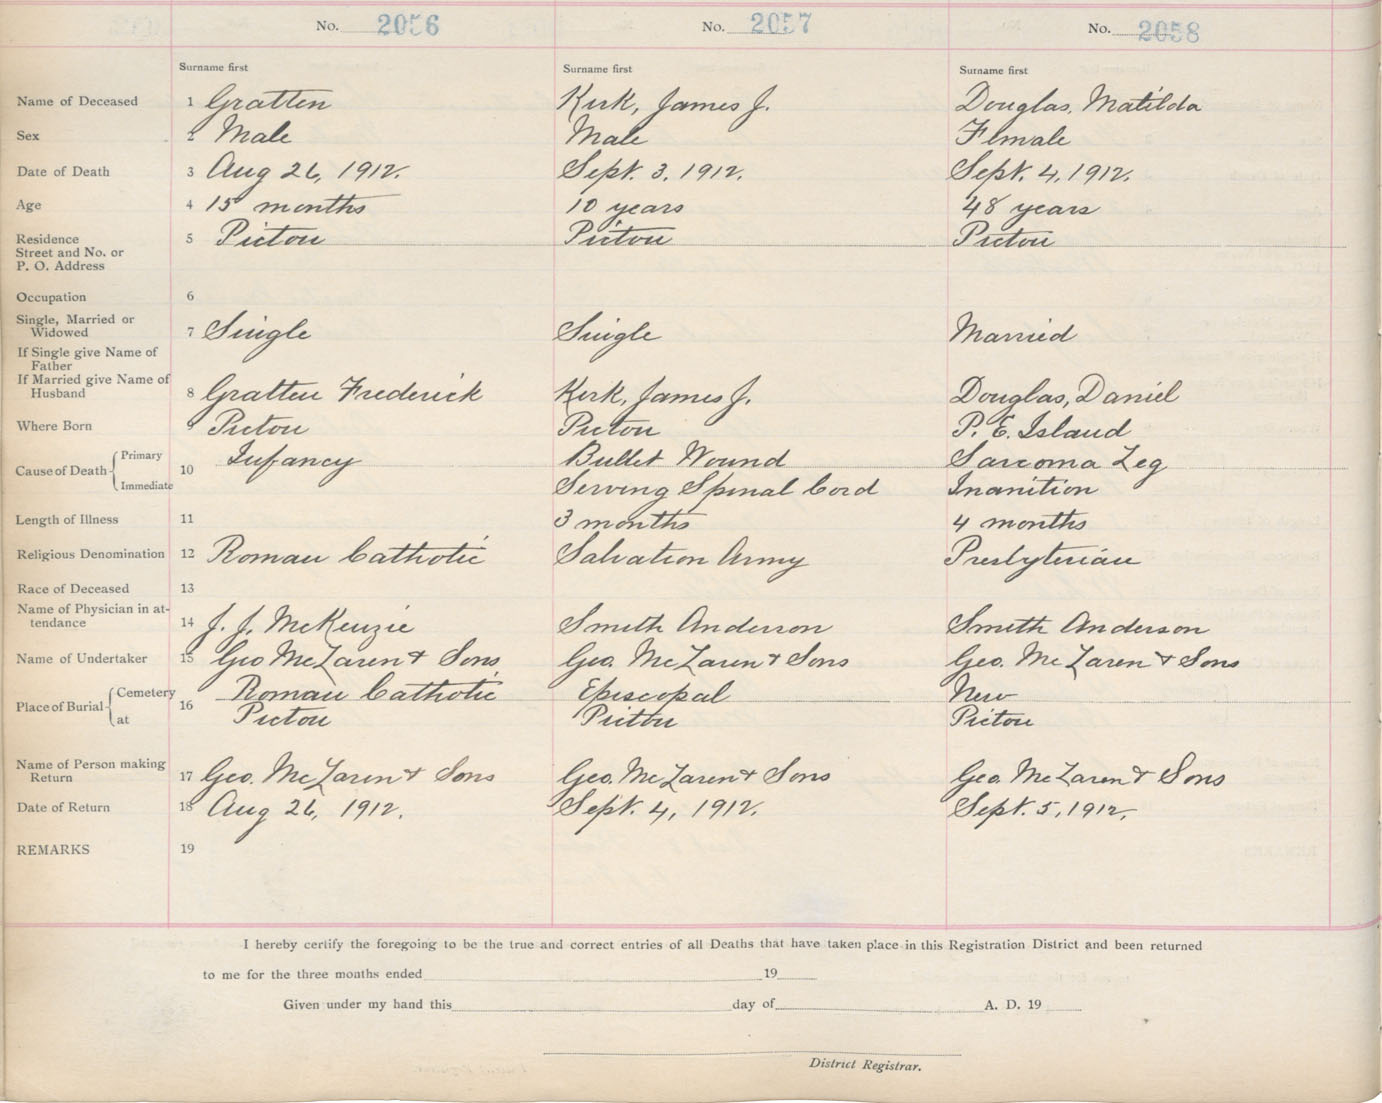 No. 2056 No. 2057 No. 2058
Surname first Surname first Surname first
Name of Deceased 1 Gratten Kirk, James J. Douglas, Matilda
Sex 2 Male Male Female
Date of Death 3 Aug 26, 1912. Sept. 3, 1912. Sept. 4, 1912.
Age 4 15 months 10 years 48 years
Residence 5 Pictou Pictou Pictou
Street and No. or
P. O. Address
Occupation 6
Single, Married or
Widowed 7 Single Single Married
If Single give Name of
Father
If Married give Name of
Husband 8 Gratten Frederick Kirk, James J. Douglas, Daniel
Where Born 9 Pictou Pictou P. E. Island
Cause of Death Primary 10 Infancy Bullet Wound Sarcoma Leg
Immediate Serving Spinal Cord Inanition
Length of Illness 11 3 months 4 months
Religious Denomination 12 Roman Catholic Salvation Army Presbyterian
Race of Deceased 13
Name of Physician in at-
tendance 14 J. J. McKenzie Smith Anderson Smith Anderson
Name of Undertaker 15 Geo McLaren & Sons Geo. McLaren & Sons Geo. McLaren & Sons
Place of Burial Cemetery 16 Roman Catholic Episcopal New
at Pictou Pictou Pictou
Name of Person making
Return 17 Geo. McLaren & Sons Geo. McLaren & Sons Geo. McLaren & Sons
Date of Return 18 Aug 26, 1912. Sept. 4, 1912. Sept. 5, 1912.
REMARKS 19
I hereby certify the foregoing to be the true and correct entries of all Deaths that have taken place in this Registration District and been returned
to me for the three months ended 19
Given under my hand this day of A. D. 19
District Registrar.